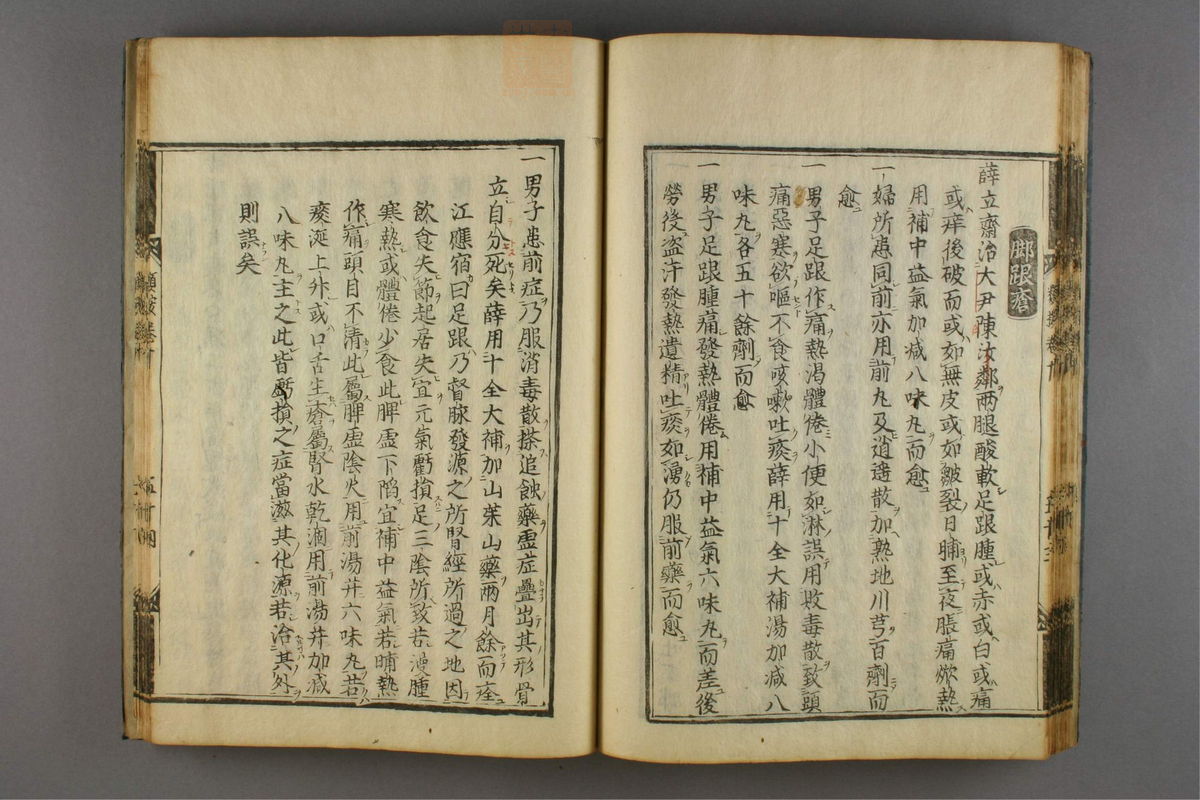 脚跟瘡
薛立齋治大尹陳汝鄰兩腿酸軟足跟腫或赤或白或痛
或痒後破而或如無皮或如皺裂日晡至夜脹痛焮熱
用補中益氣加减八味丸而愈
一婦所患同前亦用前丸及逍遥散加熟地川芎百劑而
愈
一男子足跟作痛熱渴體倦小便如淋誤用敗毒散致頭
痛惡寒欲嘔不食咳嗽吐痰薛用十全大補湯加减八
味丸各五十餘劑而愈
一男子足跟腫痛發熱體倦用補中益氣六味丸而差後
勞役盗汗發熱遺精吐痰如湧仍服前藥而愈
一男子患前症乃服消毒散搽追蝕藥虚症疊出其形骨
立自分死矣薛用十全大補加山茱山藥兩月餘而痊
江應宿曰足跟乃督脉發源之所腎經所過之地因
飲食失節起居失宜元氣虧損足三陰所致若漫腫
寒熱或體倦少食此脾虚下陷宜補中益氣若晡熱
作痛頭目不清此屬脾虚陰火用前湯并六味丸若
痰涎上升或口舌生瘡屬腎水乾涸用前湯并加减
八味丸主之此皆虧損之症當滋其化源若治其外
則誤矣